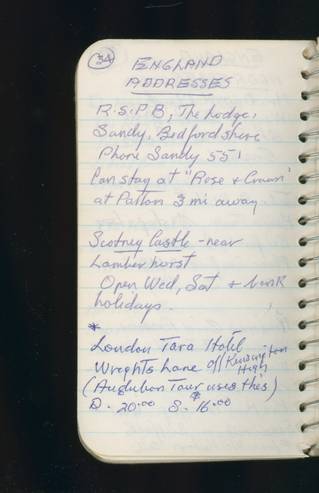 34
ENGLAND
ADDRESSES
R.S.P.B, The Lodge,
Sandy, Bedfordshire
Phone Sandy 551
Can stay at "Rose + Crown"
at Potton 3 mi away
Scotney Castle - near
Lamberhurst
Open Wed, Sat + bank
holidays.
*
London Tara Hotel
Wrights Lane off Kensington High
(Audubon Tour uses this)
D. 20.00 S. $16.00